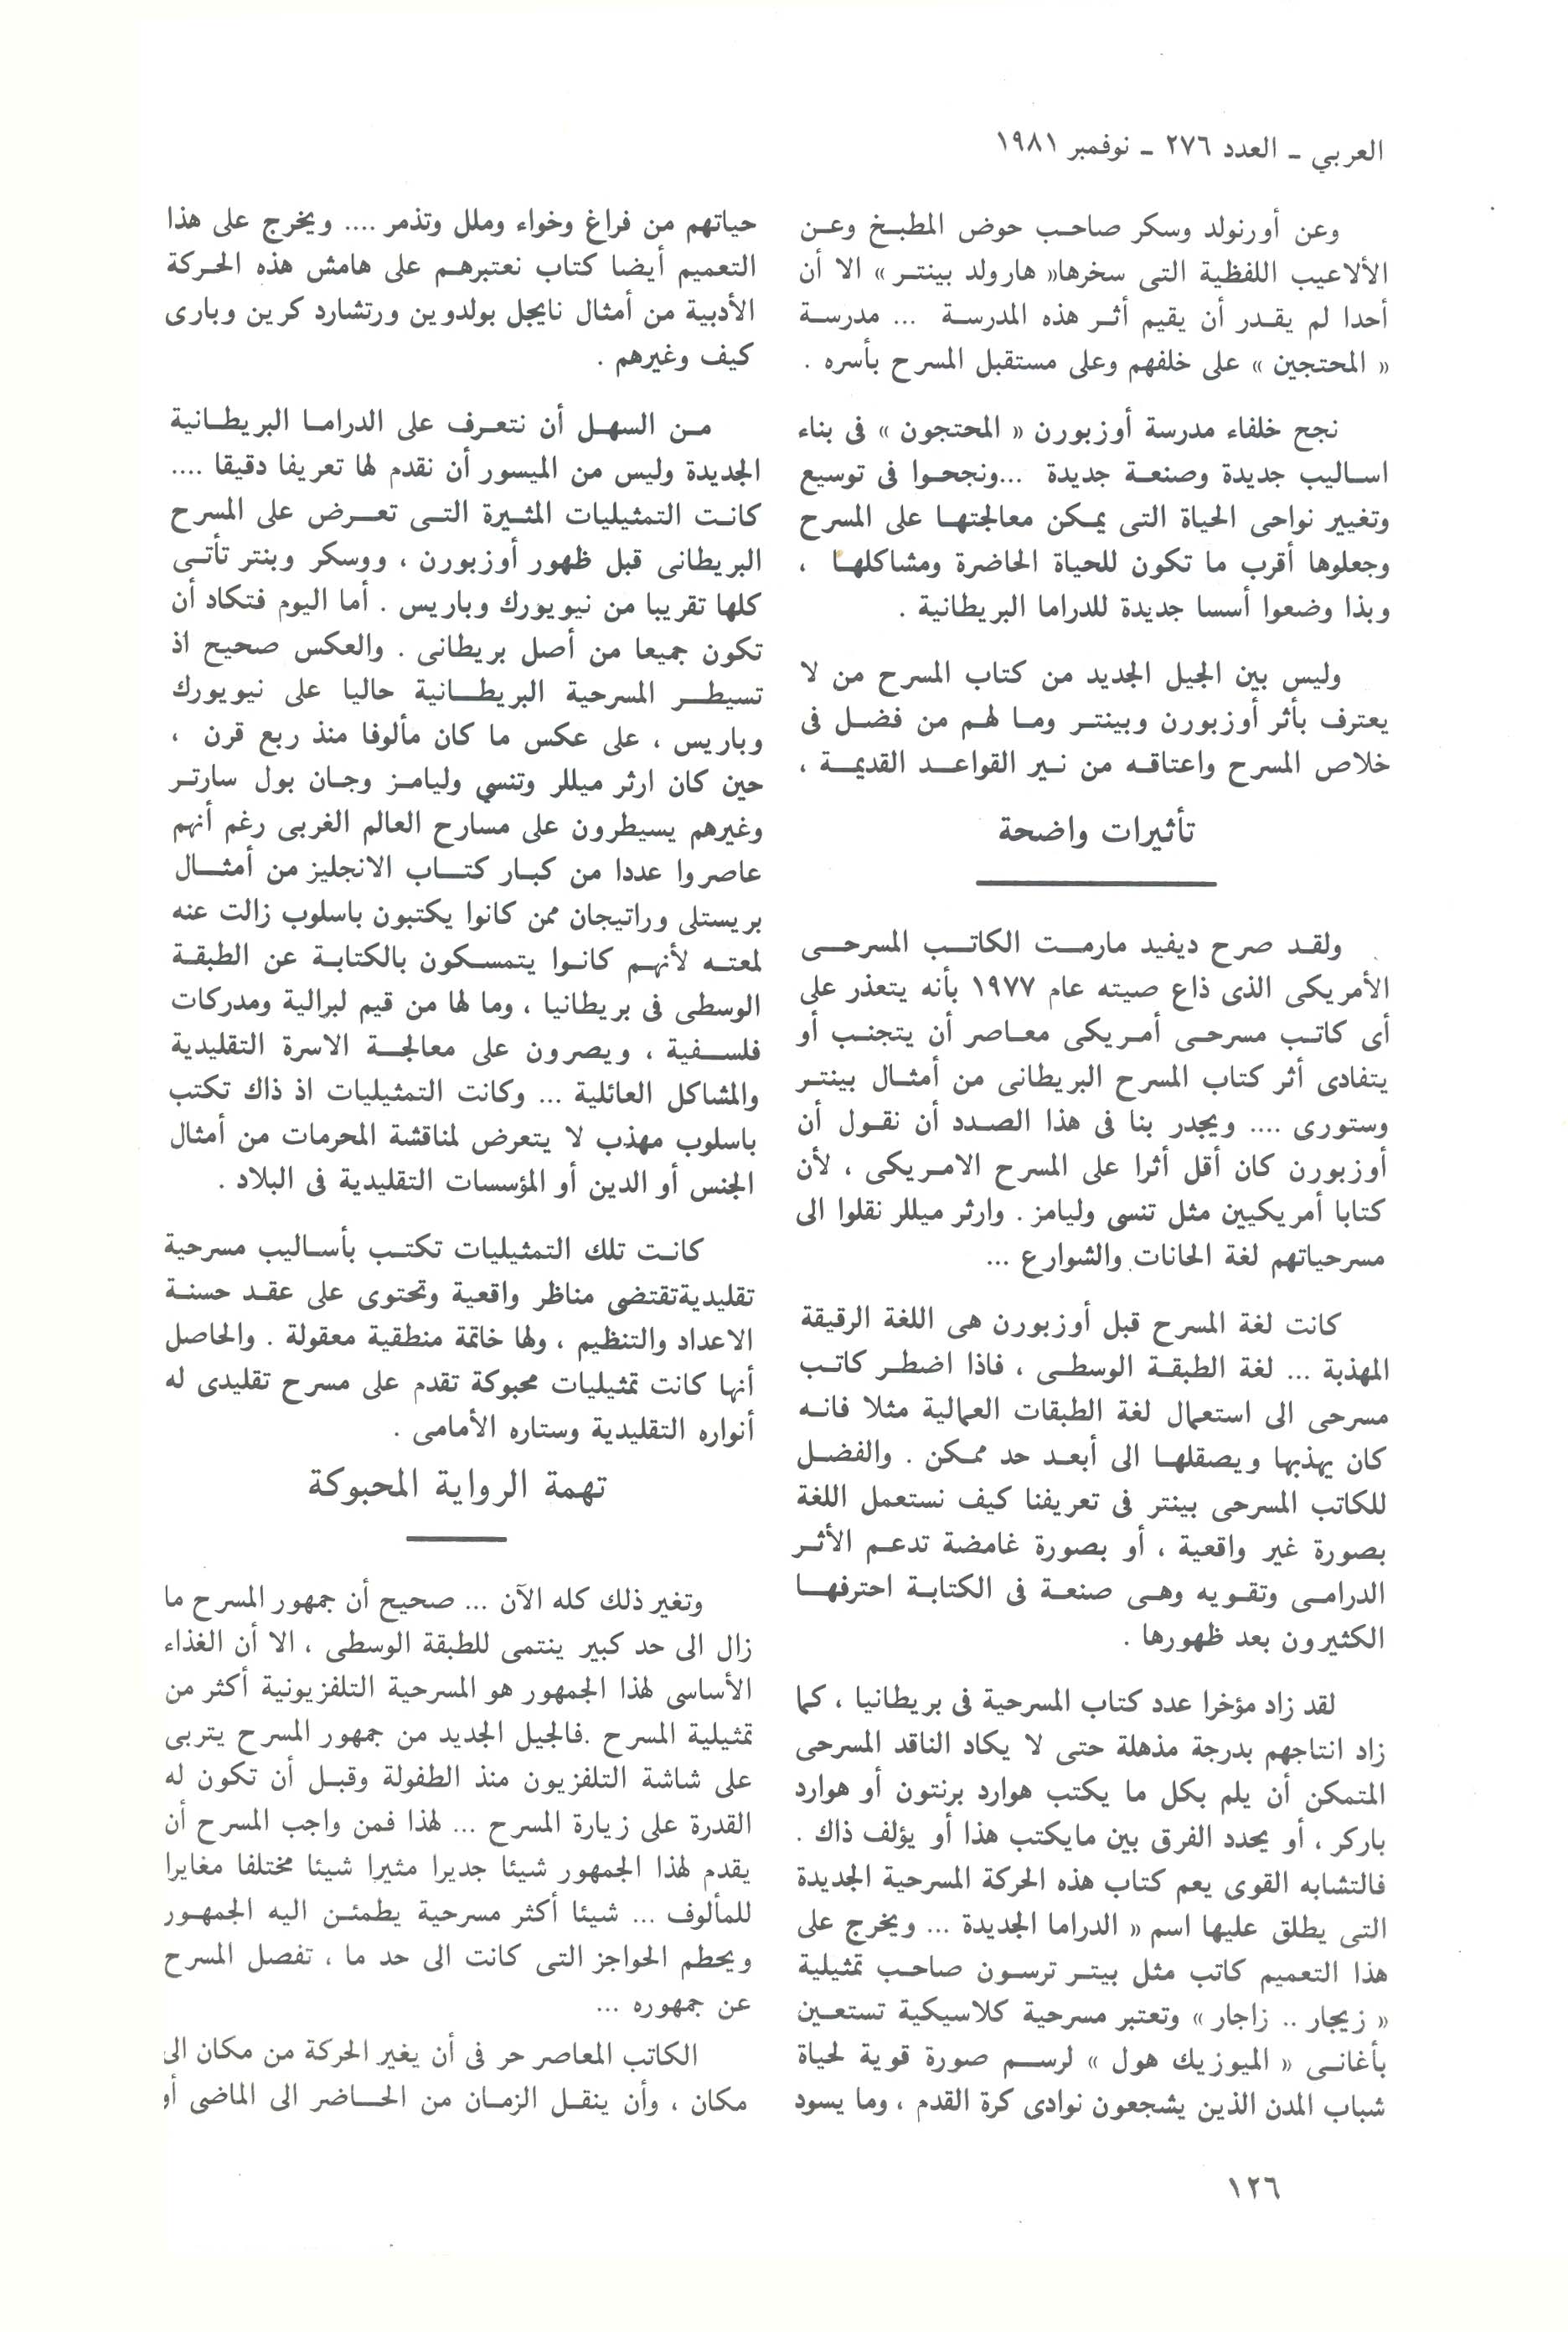 العربي - العدد ٢٧٦ - نوفمبر ١٩٨١
وعن أورنولد وسكر صاحب حوض المطبخ وعن
الألاعيب اللفظية التى سخرها« هارولد بينتر » الا أن
أحدا لم يقدر أن يقيم أثر هذه المدرسة ... مدرسة
« المحتجين » على خلفهم وعلى مستقبل المسرح بأسره .
نجح خلفاء مدرسة أوزبورن « المحتجون » فى بناء
اساليب جديدة وصنعة جديدة ...ونجحوا فى توسيع
وتغيير نواحى الحياة التى يمكن معالجتها على المسرح
وجعلوها أقرب ما تكون للحياة الحاضرة ومشاكلها ،
وبذا وضعوا أسسا جديدة للدراما البريطانية .
وليس بين الجيل الجديد من كتاب المسرح من لا
يعترف بأثر أوزبورن وبينتر وما لهم من فضل فى
خلاص المسرح واعتاقه من نير القواعد القديمة ،
تأثيرات واضحة
ولقد صرح ديفيد مارمت الكاتب المسرحى
الأمريكى الذى ذاع صيته عام ١٩٧٧ بأنه يتعذر على
أى كاتب مسرحى أمريكى معاصر أن يتجنب أو
يتفادى أثر كتاب المسرح البريطانى من أمثال بينتر
وستورى .... ويجدر بنا فى هذا الصدد أن نقول أن
أوزبورن كان أقل أثرا على المسرح الامريكى ، لأن
كتابا أمريكيين مثل تنسى وليامز . وارثر ميللر نقلوا الى
مسرحياتهم لغة الحانات والشوارع ...
كانت لغة المسرح قبل أوزبورن هى اللغة الرقيقة
المهذبة ... لغة الطبقة الوسطى ، فاذا اضطر كاتب
مسرحى الى استعمال لغة الطبقات العمالية مثلا فانه
كان يهذبها ويصقلها الى أبعد حد ممكن . والفضل
للكاتب المسرحى بينتر فى تعريفنا كيف نستعمل اللغة
بصورة غير واقعية ، أو بصورة غامضة تدعم الأثر
الدرامى وتقويه وهى صنعة فى الكتابة احترفها
الكثيرون بعد ظهورها .
لقد زاد مؤخرا عدد كتاب المسرحية فى بريطانيا ، كما
زاد انتاجهم بدرجة مذهلة حتى لا يكاد الناقد المسرحى
المتمكن أن يلم بكل ما يكتب هوارد برنتون أو هوارد
باركر ، أو يحدد الفرق بين مايكتب هذا أو يؤلف ذاك .
فالتشابه القوى يعم كتاب هذه الحركة المسرحية الجديدة
التى يطلق عليها اسم « الدراما الجديدة ... ويخرج على
هذا التعميم كاتب مثل بيتر ترسون صاحب تمثيلية
« زيجار .. زاجار » وتعتبر مسرحية كلاسيكية تستعين
بأغانى « الميوزيك هول » لرسم صورة قوية لحياة
شباب المدن الذين يشجعون نوادى كرة القدم ، وما يسود
حياتهم من فراغ وخواء وملل وتذمر .... ويخرج على هذا
التعميم أيضا كتاب نعتبرهم على هامش هذه الحركة
الأدبية من أمثال نايجل بولدوين ورتشارد كرين وبارى
كيف وغيرهم .
من السهل أن نتعرف على الدراما البريطانية
الجديدة وليس من الميسور أن نقدم لها تعريفا دقيقا ....
كانت التمثيليات المثيرة التى تعرض على المسرح
البريطانى قبل ظهور أوزبورن ، ووسكر وبنتر تأتى
كلها تقريبا من نيويورك وباريس . أما اليوم فتكاد أن
تكون جميعا من أصل بريطانى . والعكس صحيح اذ
تسيطر المسرحية البريطانية حاليا على نيويورك
وباريس ، على عكس ما كان مألوفا منذ ربع قرن ،
حين كان ارثر ميللر وتنسي وليامز وجان بول سارتر
وغيرهم يسيطرون على مسارح العالم الغربى رغم أنهم
عاصروا عددا من كبار كتاب الانجليز من أمثال
بريستلى وراتيجان ممن كانوا يكتبون باسلوب زالت عنه
لمعته لأنهم كانوا يتمسكون بالكتابة عن الطبقة
الوسطى فى بريطانيا ، وما لها من قيم لبرالية ومدركات
فلسفية ، ويصرون على معالجة الاسرة التقليدية
والمشاكل العائلية ... وكانت التمثيليات اذ ذاك تكتب
باسلوب مهذب لا يتعرض لمناقشة المحرمات من أمثال
الجنس أو الدين أو المؤسسات التقليدية فى البلاد .
كانت تلك التمثيليات تكتب بأساليب مسرحية
تقليديةتقتضى مناظر واقعية وتحتوى على عقد حسنة
الاعداد والتنظيم ، ولها خاتمة منطقية معقولة . والحاصل
أنها كانت تمثيليات محبوكة تقدم على مسرح تقليدى له
أنواره التقليدية وستاره الأمامى .
تهمة الرواية المحبوكة
وتغير ذلك كله الآن ... صحيح أن جمهور المسرح ما
زال الى حد كبير ينتمى للطبقة الوسطى ، الا أن الغذاء
الأساسى لهذا الجمهور هو المسرحية التلفزيونية أكثر من
تمثيلية المسرح .فالجيل الجديد من جمهور المسرح يتربى
على شاشة التلفزيون منذ الطفولة وقبل أن تكون له
القدرة على زيارة المسرح ... لهذا فمن واجب المسرح أن
يقدم لهذا الجمهور شيئا جديرا مثيرا شيئا مختلفا مغايرا
للمألوف ... شيئا أكثر مسرحية يطمئن اليه الجمهور
ويحطم الحواجز التى كانت الى حد ما ، تفصل المسرح
عن جمهوره ...
الكاتب المعاصر حر فى أن يغير الحركة من مكان الى
مكان ، وأن ينقل الزمان من الحاضر الى الماضى أو
١٢٦